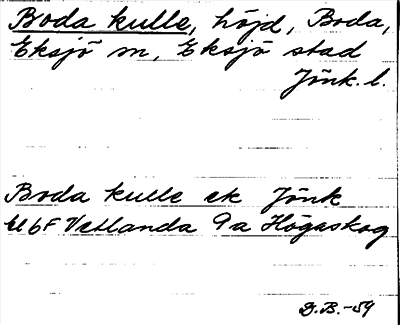 Boda kulle, höjd, Boda,
Eksjö m, Eksjö stad
Jönk. l.
Boda kulle ek Jönk
UbF Vetlanda 9a Högaskog
D.B. -59